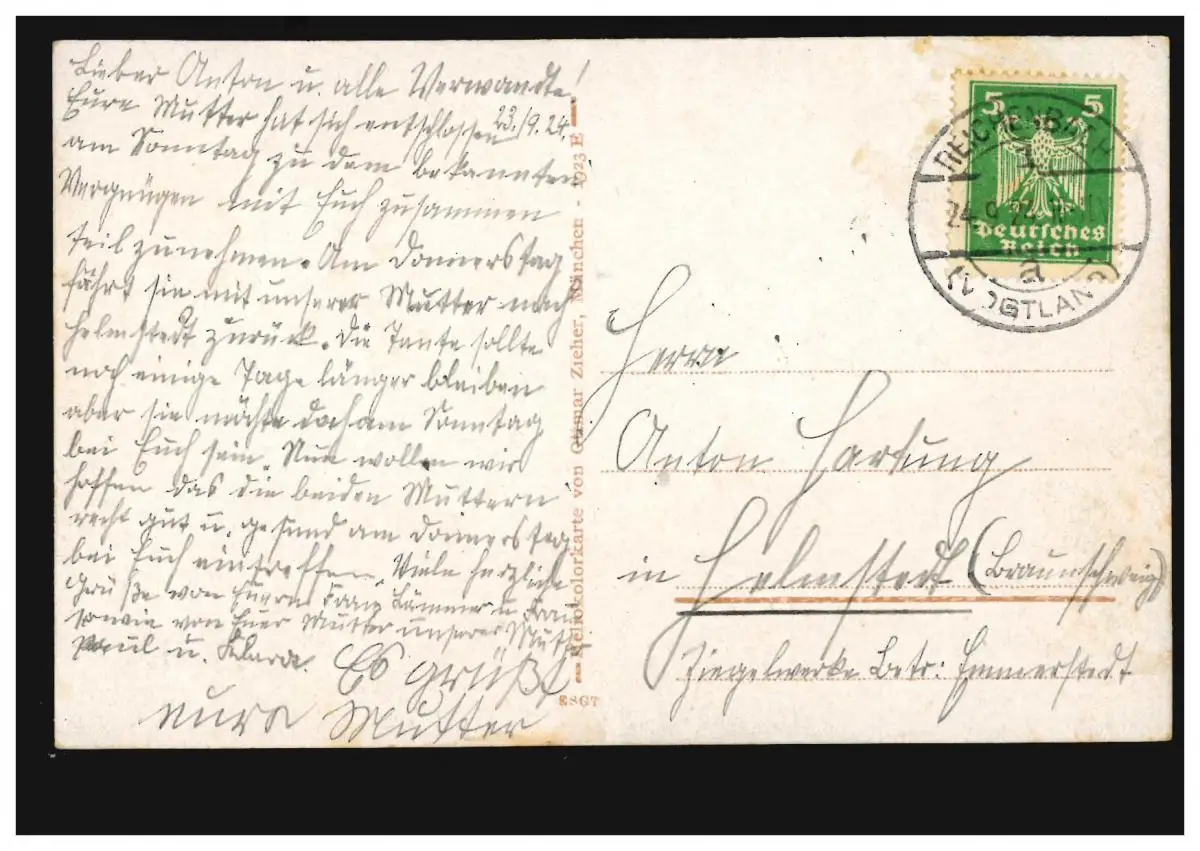 Lieber Anton u. alle Verwandte!
Eure Mutter hat sich entschlossen 23./9.24.
am Sonntag zu dem bekannten
Vergnügen mit Euch zusammen
teil zunehmen. Am Donnerstag
fährt sie mit unserer Mutter nach
Helmstedt zurück. Die Tante sollte
noch einige Tage länger bleiben
aber sie möchte doch am Sonntag
bei Euch sein. Nun wollen wir
hoffen das die beiden Muttern
recht gut u. gesund am Donnerstag
bei Euch eintreffen. Viele herzliche
Grüße von Euern Franz Lämmer u. Frau
sowie von Euer Mutter unserer Mutt.
Paul u. Klara. Es grüßt
eure Mutter
Heliokolorkarte von Ottmar Zieher, München - 1923 E
ESGT
5 5
Deutsches
Reich
REICHENBACH
24.9.24
a
(VOGTLAND)
Herrn
Anton Hartung
in Helmstedt (Braunschweig)
Ziegelwerke Betr: Emmerstedt